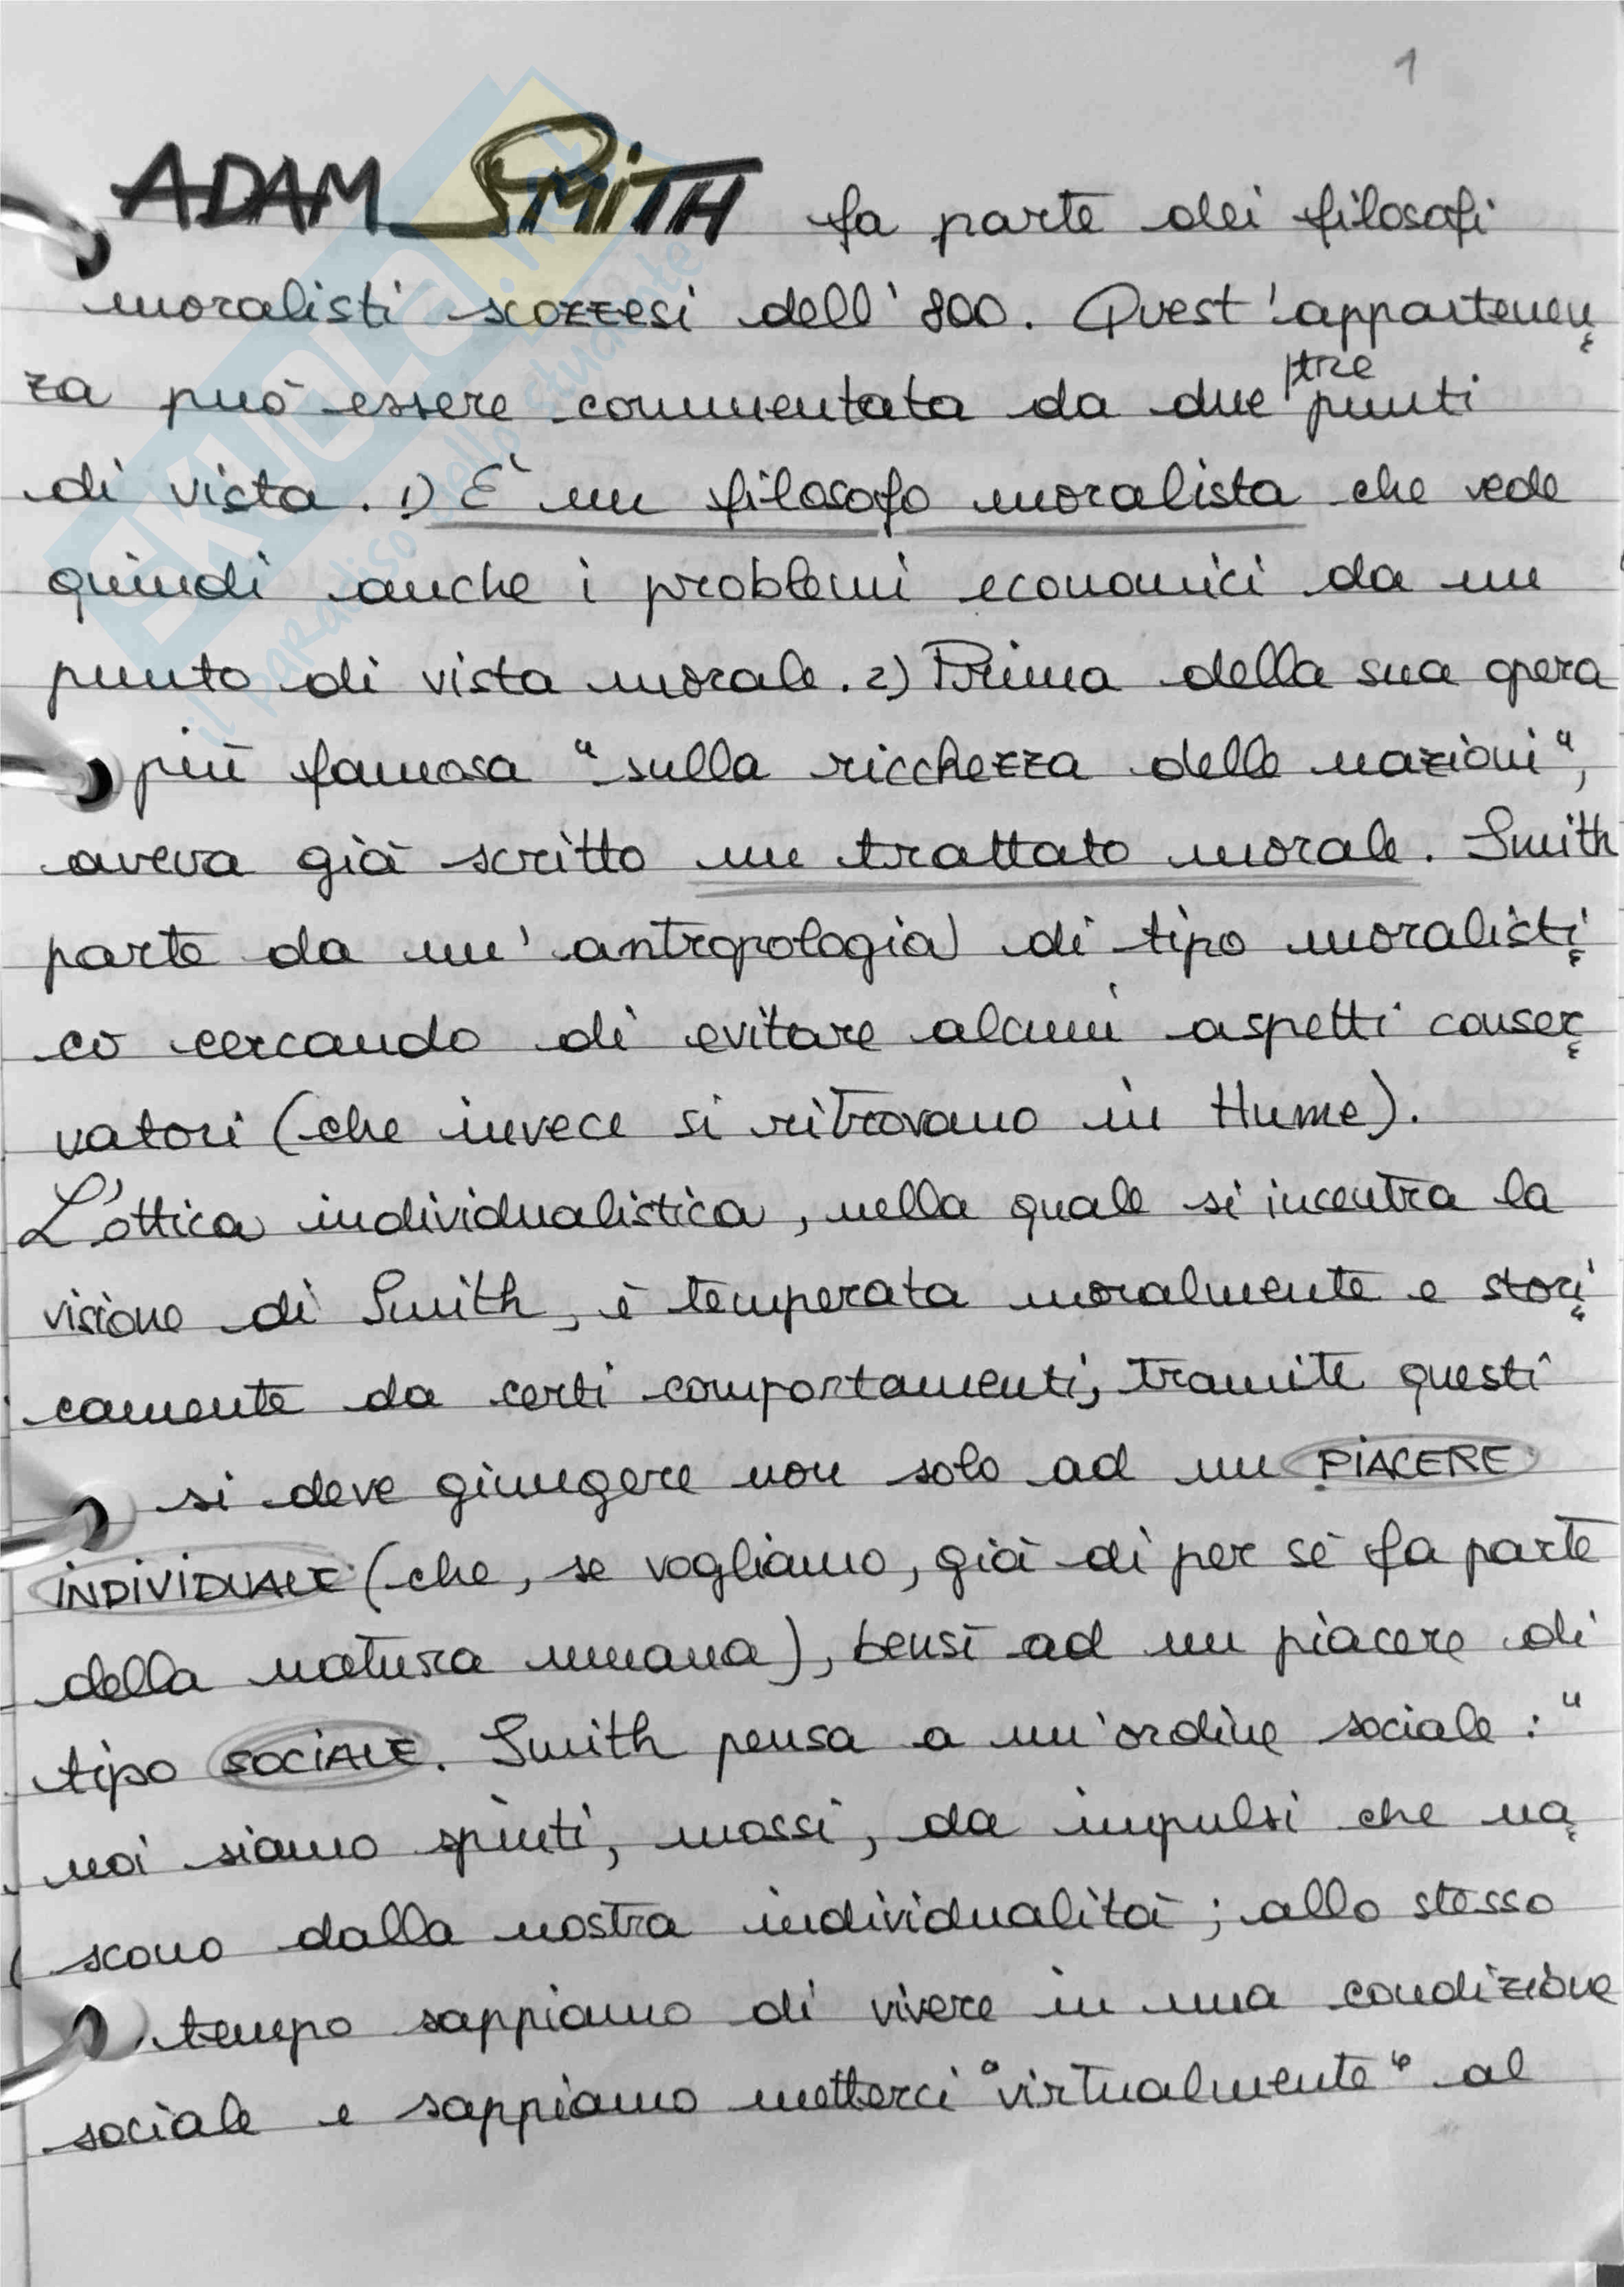 1
ADAM SMITH fa parte dei filosofi
moralisti scozzesi dell'800. Quest'appartenen
za può essere commentata da due/tre punti
di vista. 1) È un filosofo moralista che vede
quindi anche i problemi economici da un
punto di vista morale. 2) Prima della sua opera
più famosa "sulla ricchezza delle nazioni",
aveva già scritto un trattato morale. Smith
parte da un'antropologia di tipo moralisti
co cercando di evitare alcuni aspetti conser
vatori (che invece si ritrovano in Hume).
L'ottica individualistica, nella quale si incentra la
visione di Smith, è temperata moralmente e stori
camente da certi comportamenti, tramite questi
si deve giungere non solo ad un PIACERE
INDIVIDUALE (che, se vogliamo, già di per sé fa parte
della natura umana), bensì ad un piacere di
tipo SOCIALE. Smith pensa a un'ordine sociale: "
noi siamo spinti, mossi, da impulsi che na
scono dalla nostra individualità; allo stesso
tempo sappiamo di vivere in una condizione
sociale e sappiamo metterci "virtualmente" al
SKUOLA.net
il paradiso dello studente